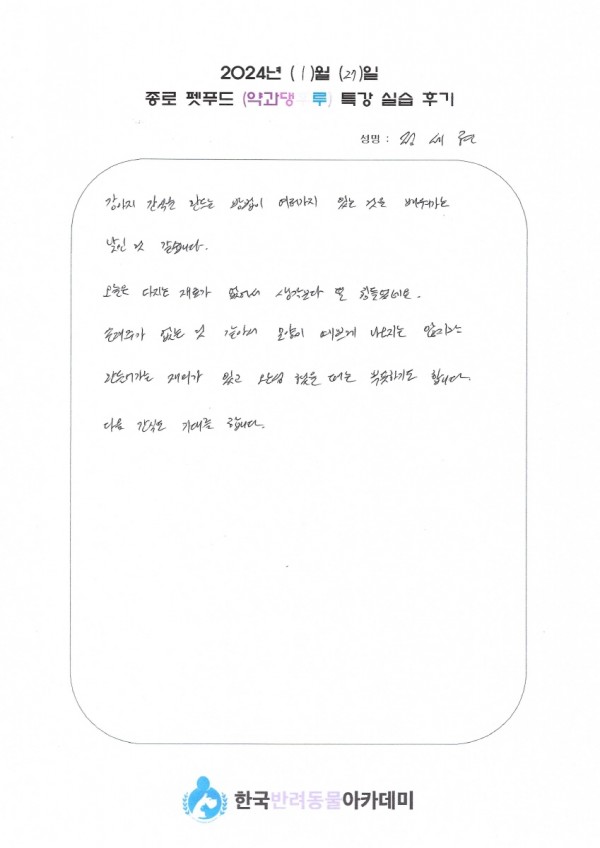 2024년 (1)월 (27)일
종로 펫푸드 (약과댕 루) 특강 실습 후기
성명 : 정세현
강아지 간식은 만드는 방법이 여러가지 있는 것을 배워가는
날인 것 같습니다.
오늘은 다지는 재료가 없어서 생각보다 덜 힘들었네요.
손재주가 없는 것 같아서 모양이 예쁘게 나오지는 않지만
만들어가는 재미가 있고 완성 했을 때는 뿌듯하기도 합니다.
다음 간식도 기대를 합니다.
한국반려동물아카데미